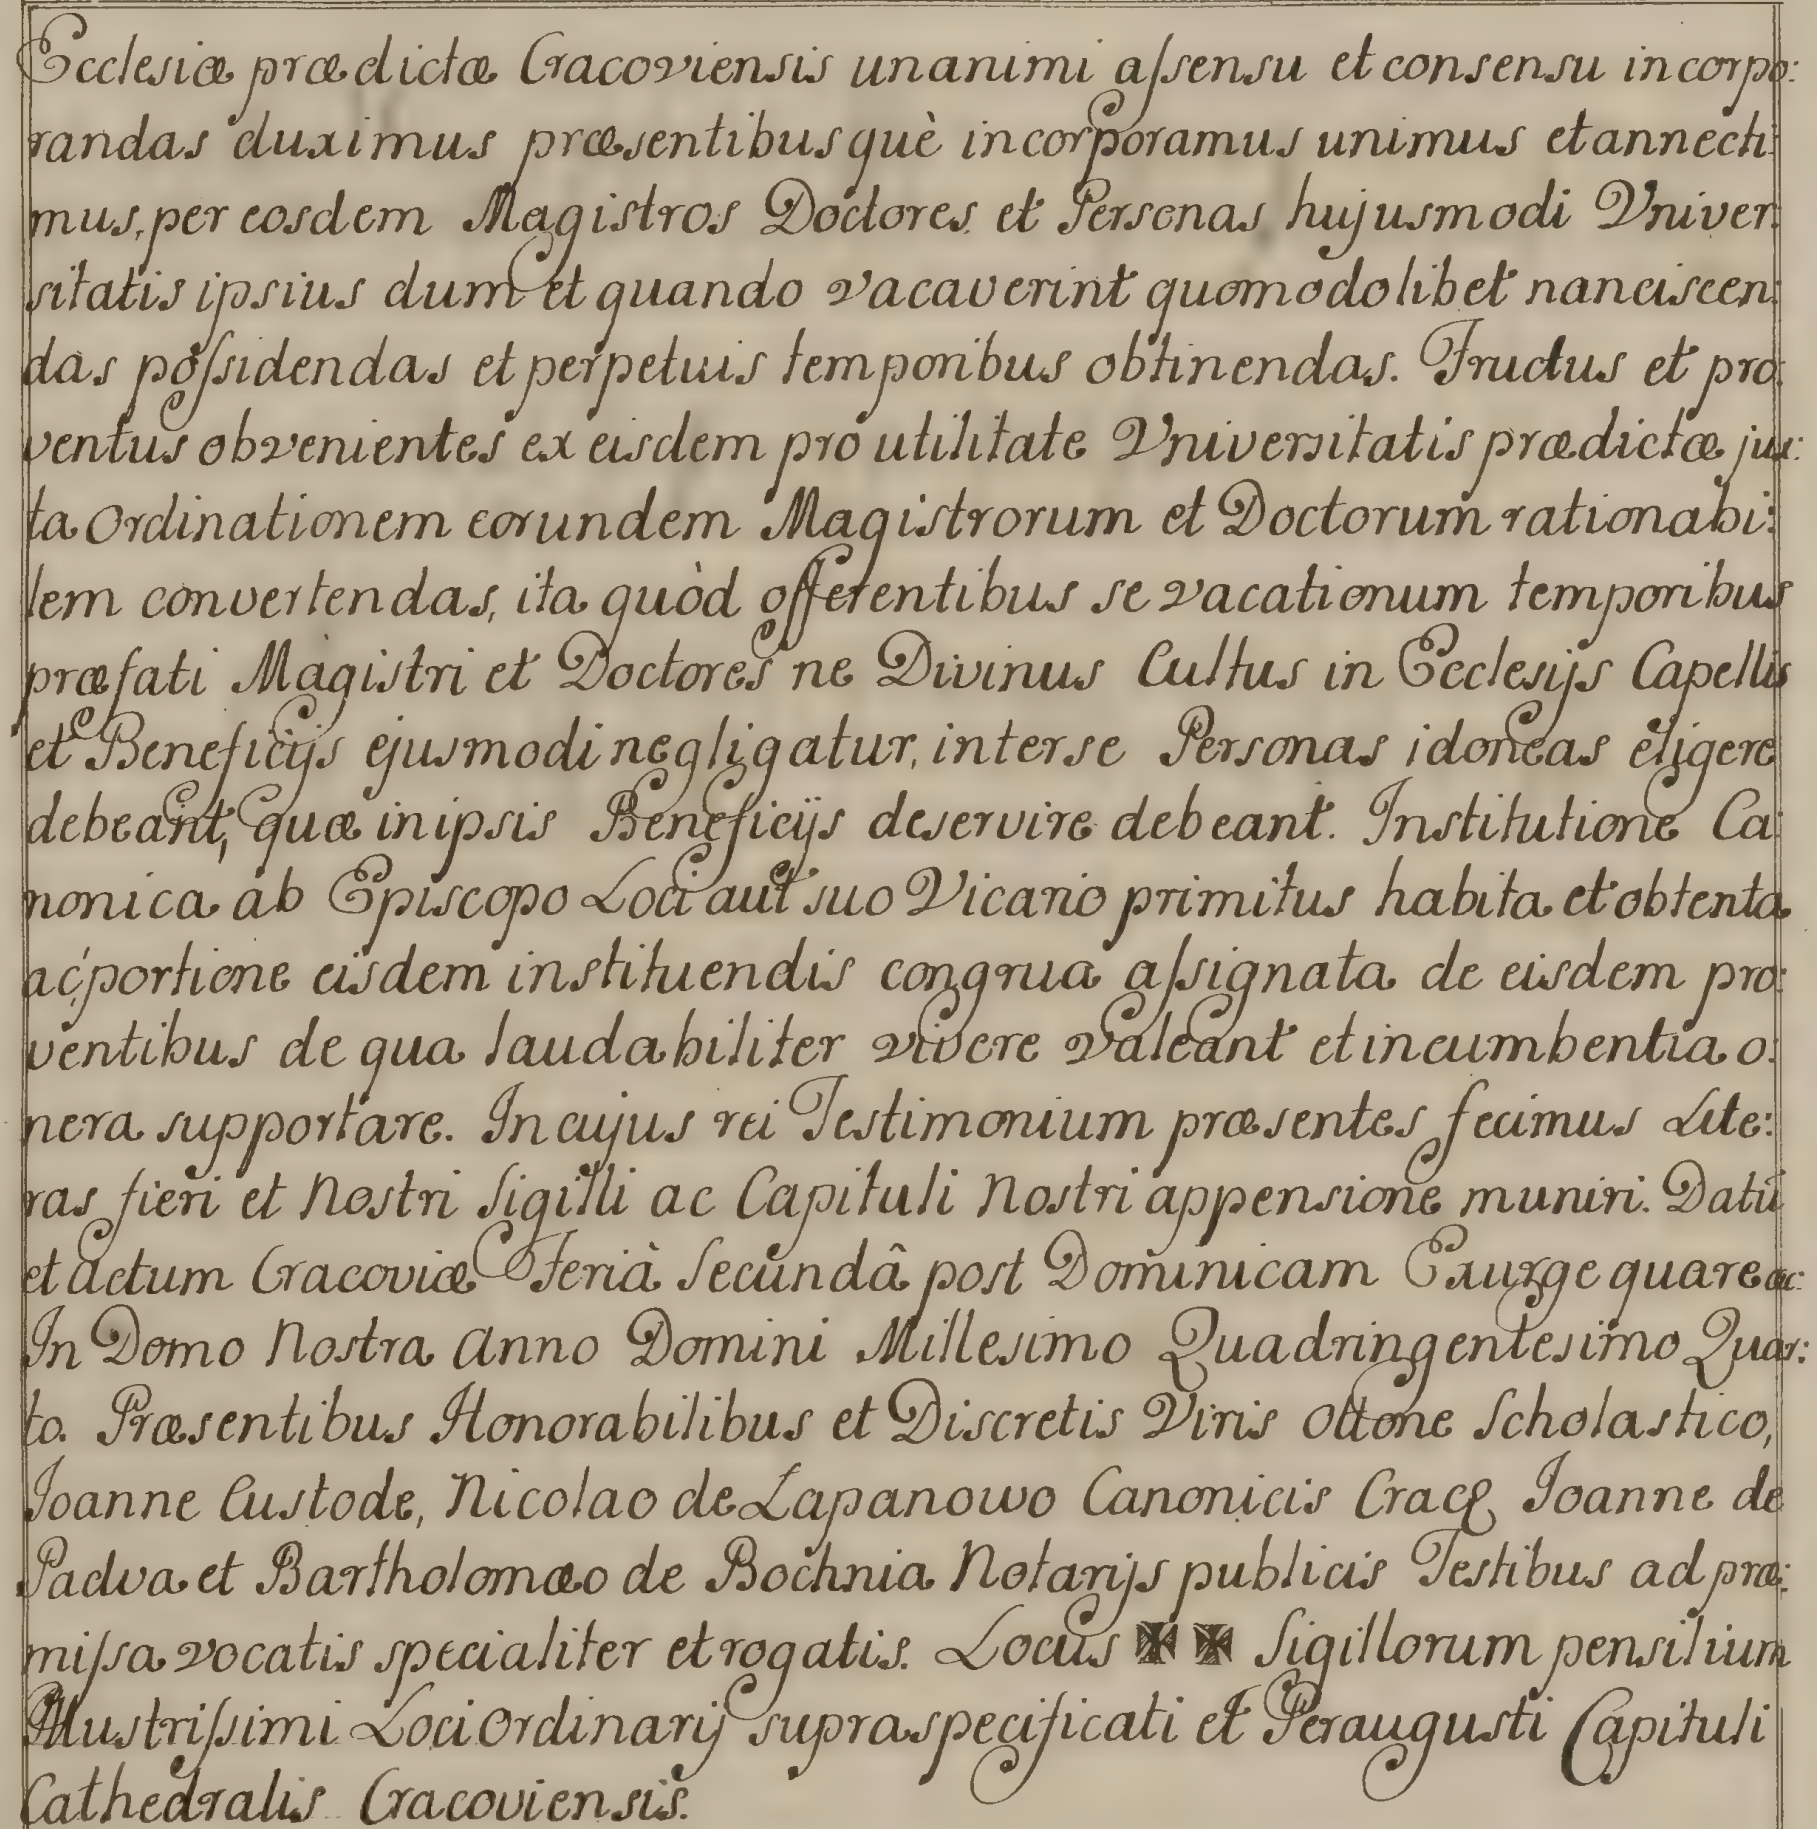 Ecclesiæ prædictæ Cracoviensis unanimi aſsensu et consensu incorpo:
randas duximus præsentibusquè incorporamus unimus et annecti:
mus, per eosdem Magistros Doctores et Personas hujusmodi Vniver:
sitatis ipsius dum et quando vacaverint quomodolibet nanciscen:
das poſsidendas et perpetuis temporibus obtinendas. Fructus et pro:
ventus obvenientes ex eisdem pro utilitate Vniversitatis prædictæ jux:
ta Ordinationem eorundem Magistrorum et Doctorum rationabi:
lem convertendas, ita quòd offerentibus se vacationum temporibus
præfati Magistri et Doctores ne Divinus Cultus in Ecclesijs Capellis
et Beneficijs ejusmodi negligatur, inter se Personas idoneas eligere
debeant, quæ in ipsis Beneficijs deservire debeant. Institutione Ca:
nonica ab Episcopo Loci aut suo Vicario primitus habita et obtenta
ac portione eisdem instituendis congrua aſsignata de eisdem pro:
ventibus de qua laudabiliter vivere valeant et incumbentia o:
nera supportare. In cujus rei Testimonium præsentes fecimus Lite:
ras fieri et Nostri Sigilli ac Capituli Nostri appensione muniri. Datū
et actum Cracoviæ Ferià Secundâ post Dominicam Exurge quare &c:
In Domo Nostra Anno Domini Millesimo Quadringentesimo Quar:
to. Præsentibus Honorabilibus et Discretis Viris Ottone Scholastico,
Joanne Custode, Nicolao de Lapanowo Canonicis Cracꝭ Joanne de
Padva et Bartholomæo de Bochnia Notarijs publicis Testibus ad præ:
miſsa vocatis specialiter et rogatis. Locus ✠ ✠ Sigillorum pensilium
Illustriſsimi Loci Ordinarij supraspecificati et Peraugusti Capituli
Cathedralis Cracoviensis.